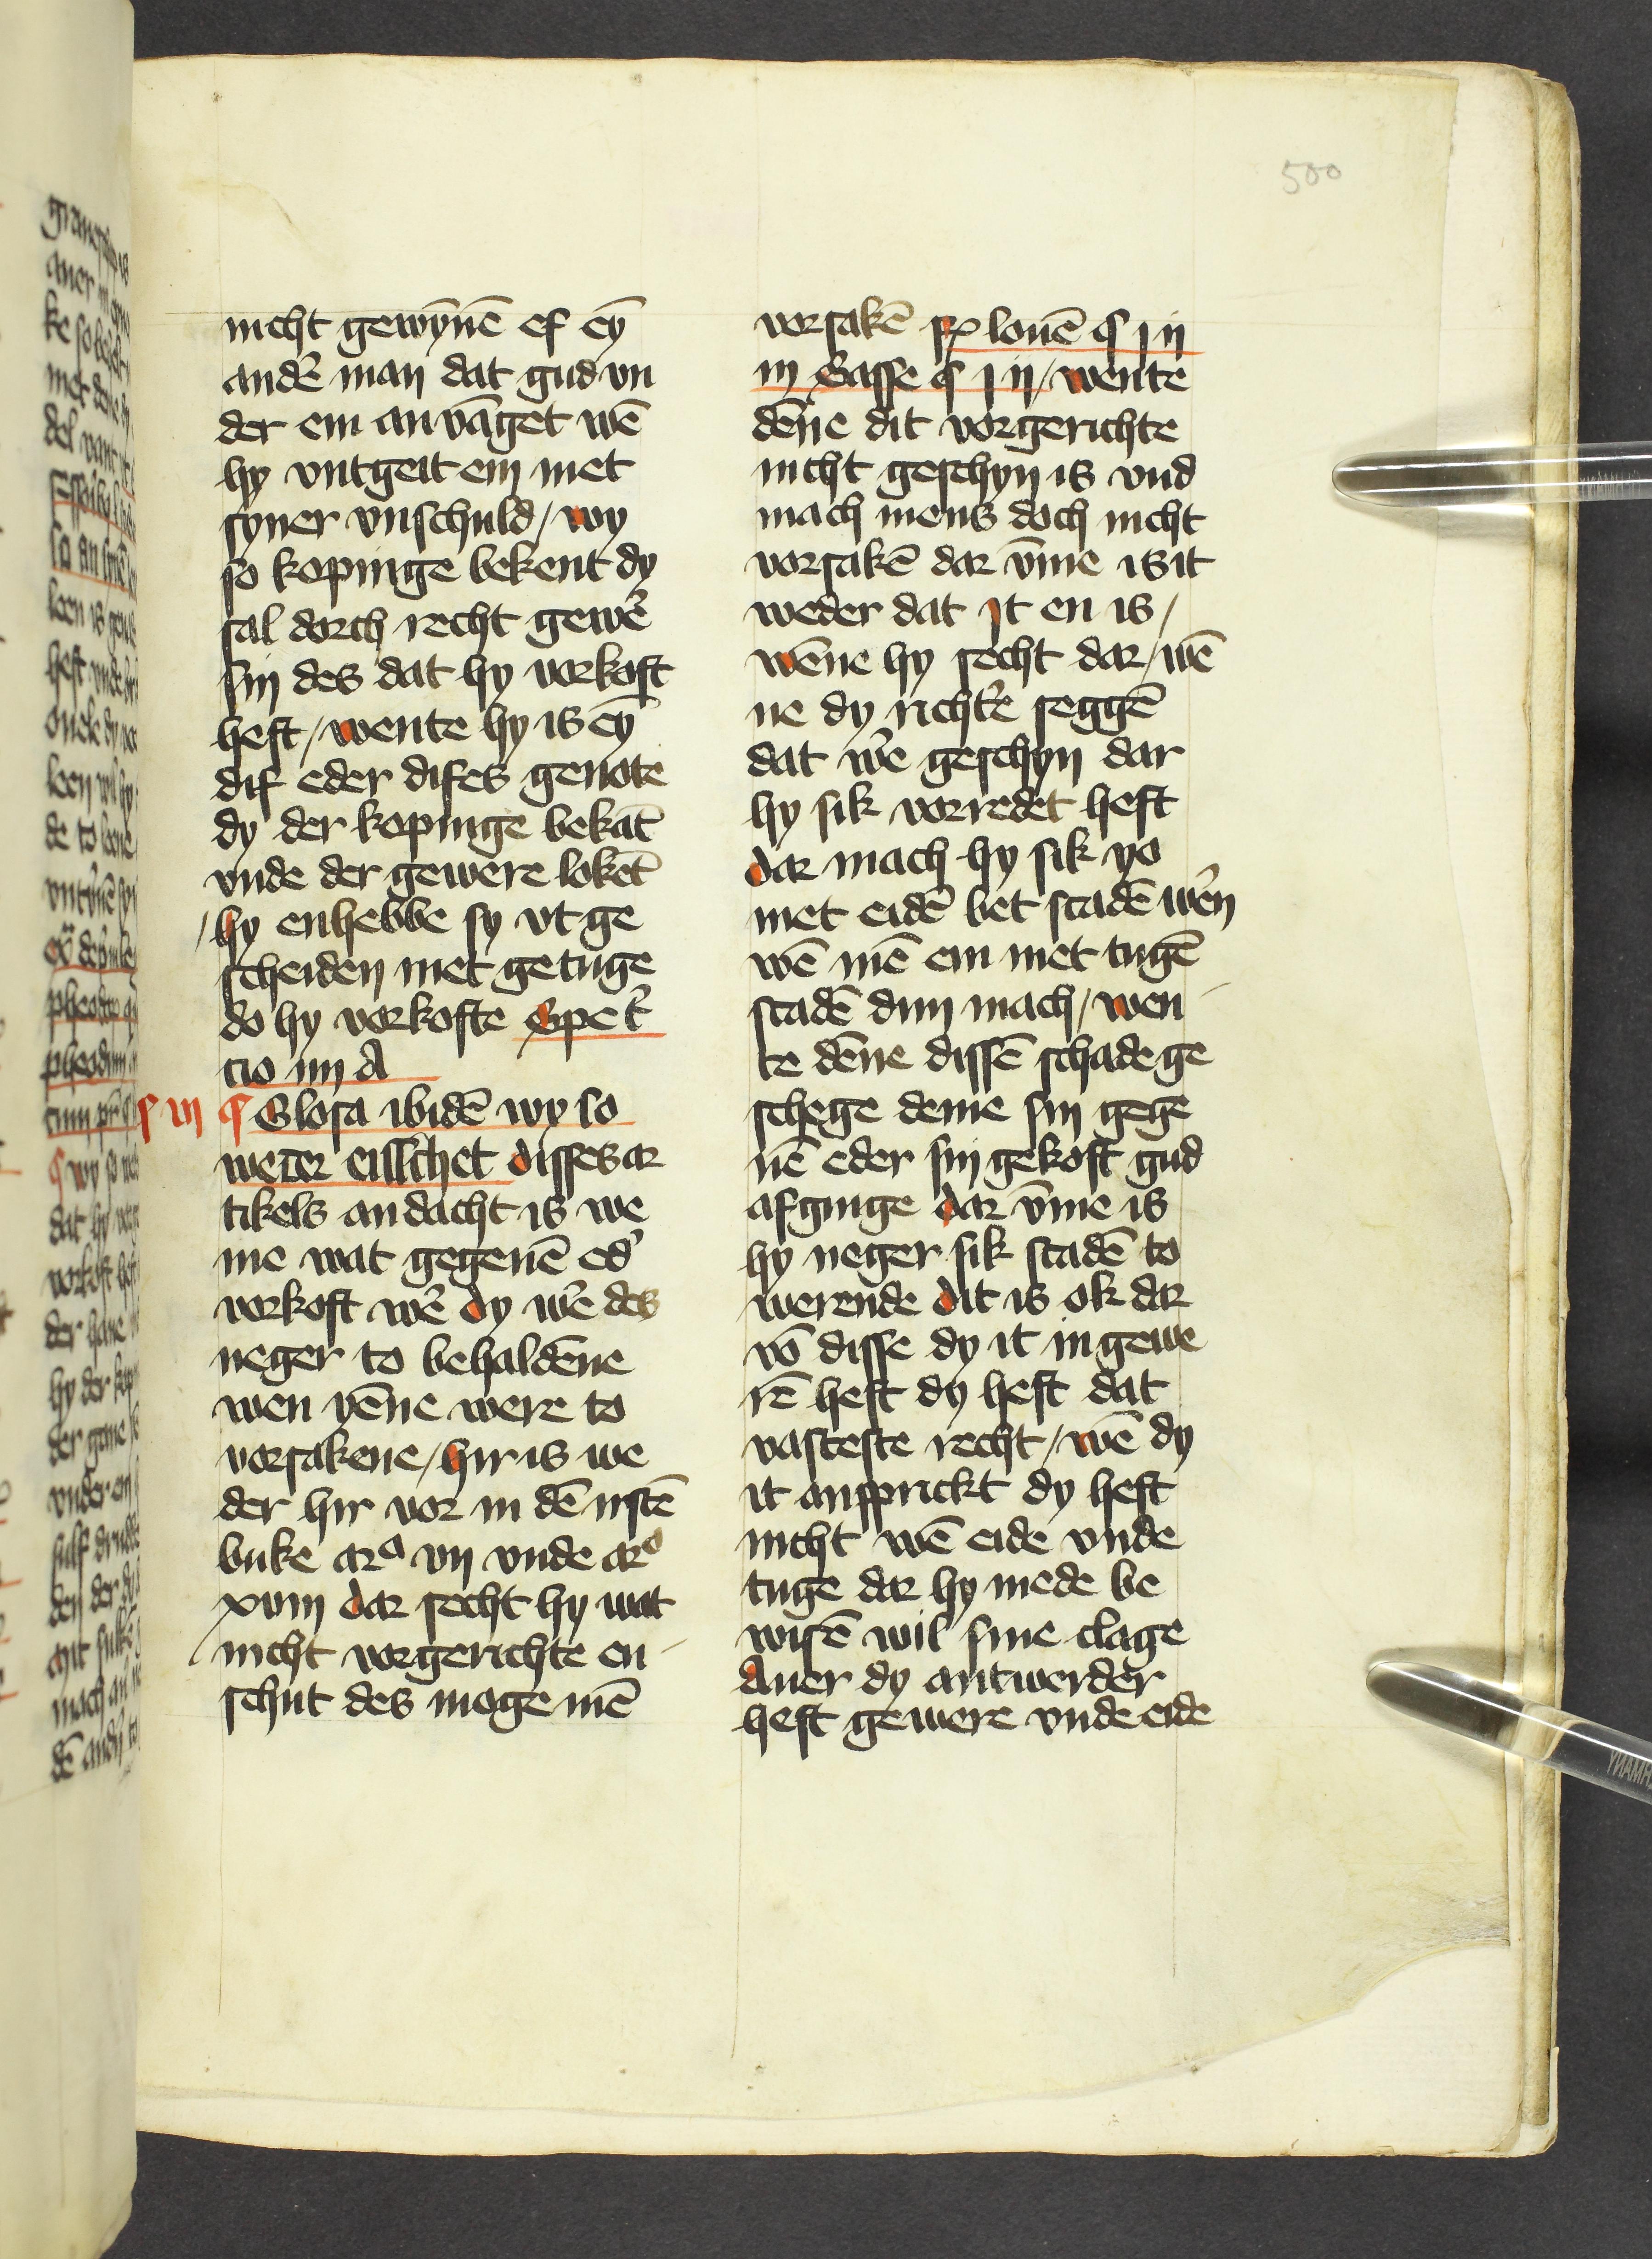 500
nicht gewȳnē ef eȳ
andẻ man dat gud vn
der em anvāget wē
hy vntgeit em met
syner vnschuld / wy
so kopinge bekent dy
sal dorch recht gewẻ
sin des dat hy vorkoft
heft / wente hy is eȳ
dif eder difes genote
dy der kopinge bekāt
vnde der gewere lokēt
/ hy enhebbe sy vt ge
scheiden met getuge
do hy vorkofte
cio iiij A
¶ Glosa ibidē wy so
weder eisschet disses ar
tikels andacht is we
me wat gegeuē ed'
vorkoft wẻ dy wẻ des
neger to behaldēne
wen yēne were to
vorsakene / hir is we
der hir vor in dē irstē
buke arᵒ vij vnde arᵒ
xviij dar secht hy wat
nicht vorgerichte en
schut des moge mē
vorsakē louē
wente
dēne dit vorgerichte
nicht geschyn is vnd
mach mens doch nicht
vorsakē dar v̄me is it
weder dat it en is /
wēne hy secht dar / wē
ne dy richtẻ seggē
dat wẻ geschyn dar
hy sik vorredet heft
dar mach hy sik yo
met eidē bet stadē wẻn
wē mē em met tugē
stadē dun mach / wen
te dēne dissē schade ge
schege deme sin gege
uē eder sin gekoft gud
afginge dar v̄me is
hy neger sik stadē to
werende dit is ok dar
vō disse dy it in gewe
rē heft dy heft dat
vasteste recht / wē dy
it ansprickt dy heft
nicht wē eide vnde
tuge dar hy mede be
wisē wil sine clage
Auer dy antwerder
heft gewere vnde eide